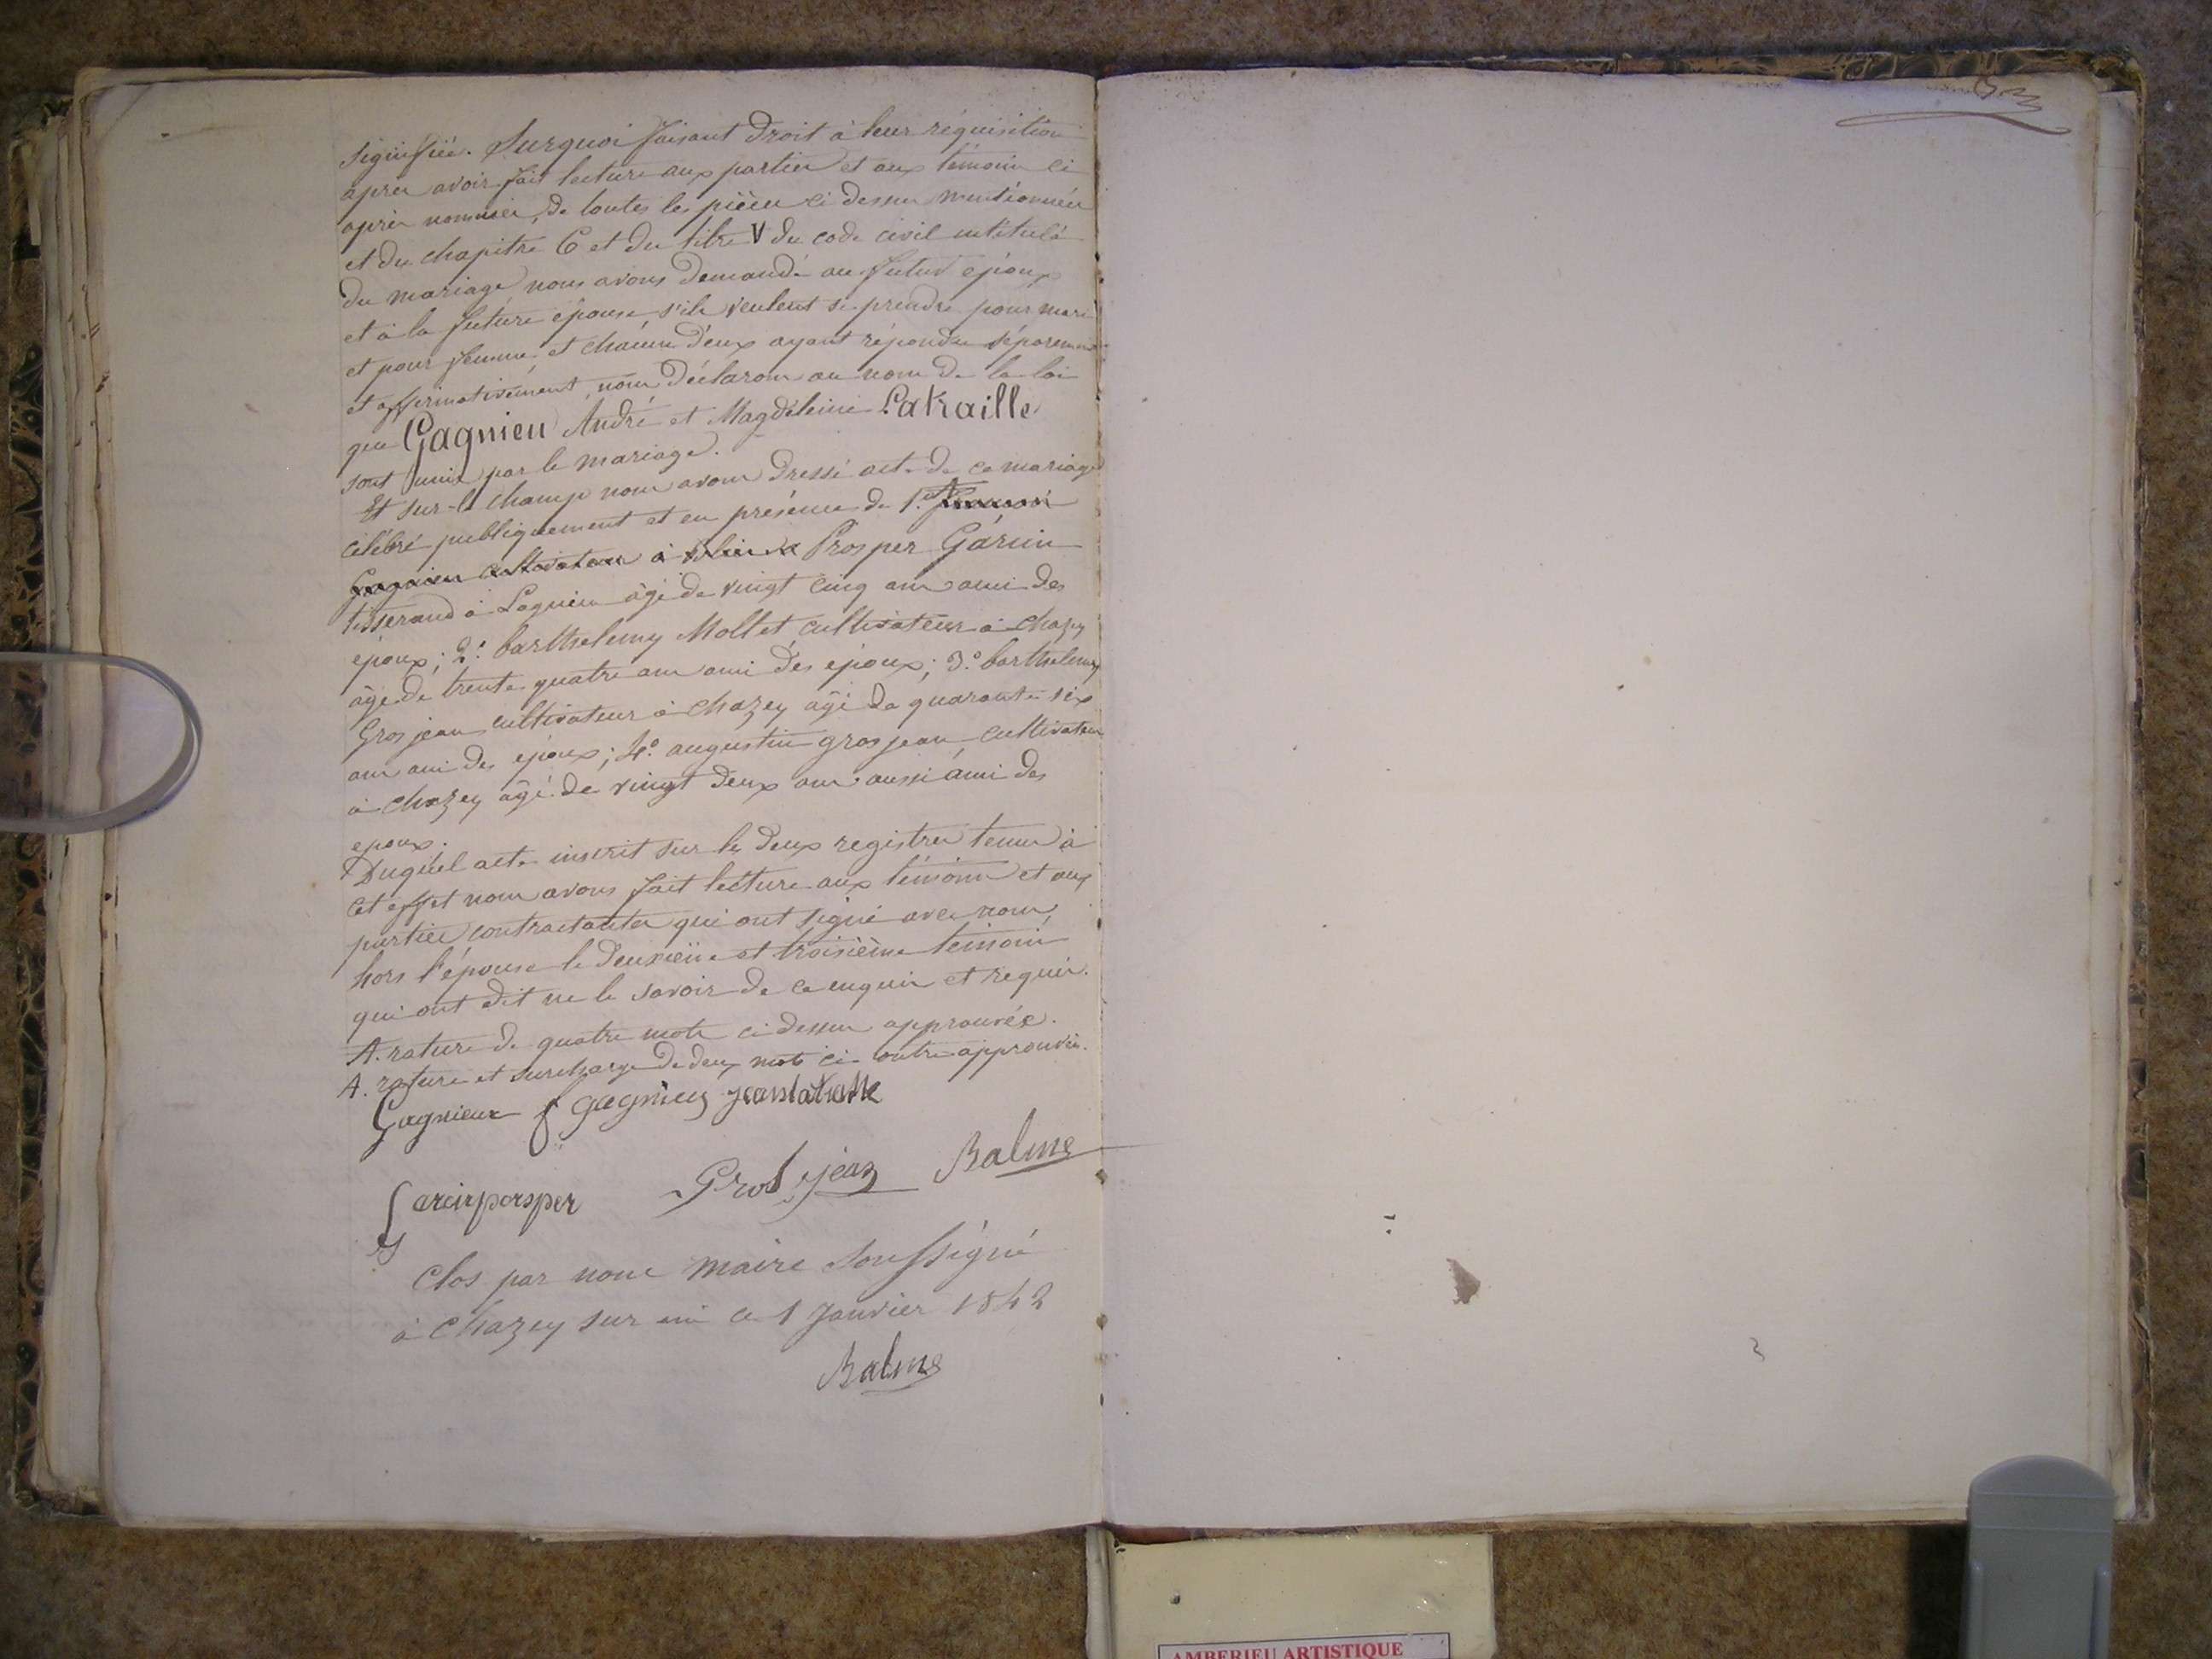 signifiée. Surquoi faisant droit à leur réquisition
après avoir fait lecture aux parties et aux témoins ci
après nommés, de toutes les pièces ci dessus mentionnées
et du chapitre 6 et du titre V du code civil intitulé
du mariage nous avons demandé au futur epoux
et à la future épouse s'ils veulent se prendre pour mari
et pour femme, et chacun d'eux ayant répondu séparement
et affirmativement, nous déclarons au nom de la loi
que Gagnieu André et Magdeleine Latraille
sont unis par le mariage.
Et sur-le champ nous avons dressé acte de ce mariage
célébré publiquement et en présence de 1.°
Gagnieu cultivateur à Prosper Garcin
tisserand à Lagnieu âgé de vingt cinq ans ami des
époux; 2.° barthelemy Mollet cultivateur à chazey
âgé de trente quatre ans ami des epoux; 3.° barthelemy
Grosjean cultivateur à chazey âgé de quarante six
ans ami des epoux; 4.° augustin grosjean cultivateur
à chazey âgé de vingt deux ans aussi ami des
epoux.
Duquel acte inscrit sur les deux registres tenus à
cet effet nous avons fait lecture aux témoins et aux
parties contractantes qui ont signé avec nous,
hors l'épouse le deuxième et troisième témoin
qui ont dit ne le savoir de ce enquis et requis.
A. rature de quatre mots ci dessus approuvée.
A. rature et surcharge de deux mots ci-contre approuvée.
Gagnieux f gagnieu jean latraille
garcin prosper Gros jean Balme
Clos par nous maire soussigné
à Chazey sur ain ce 1 Janvier 1842
Balme
AMBERIEU ARTISTIQUE